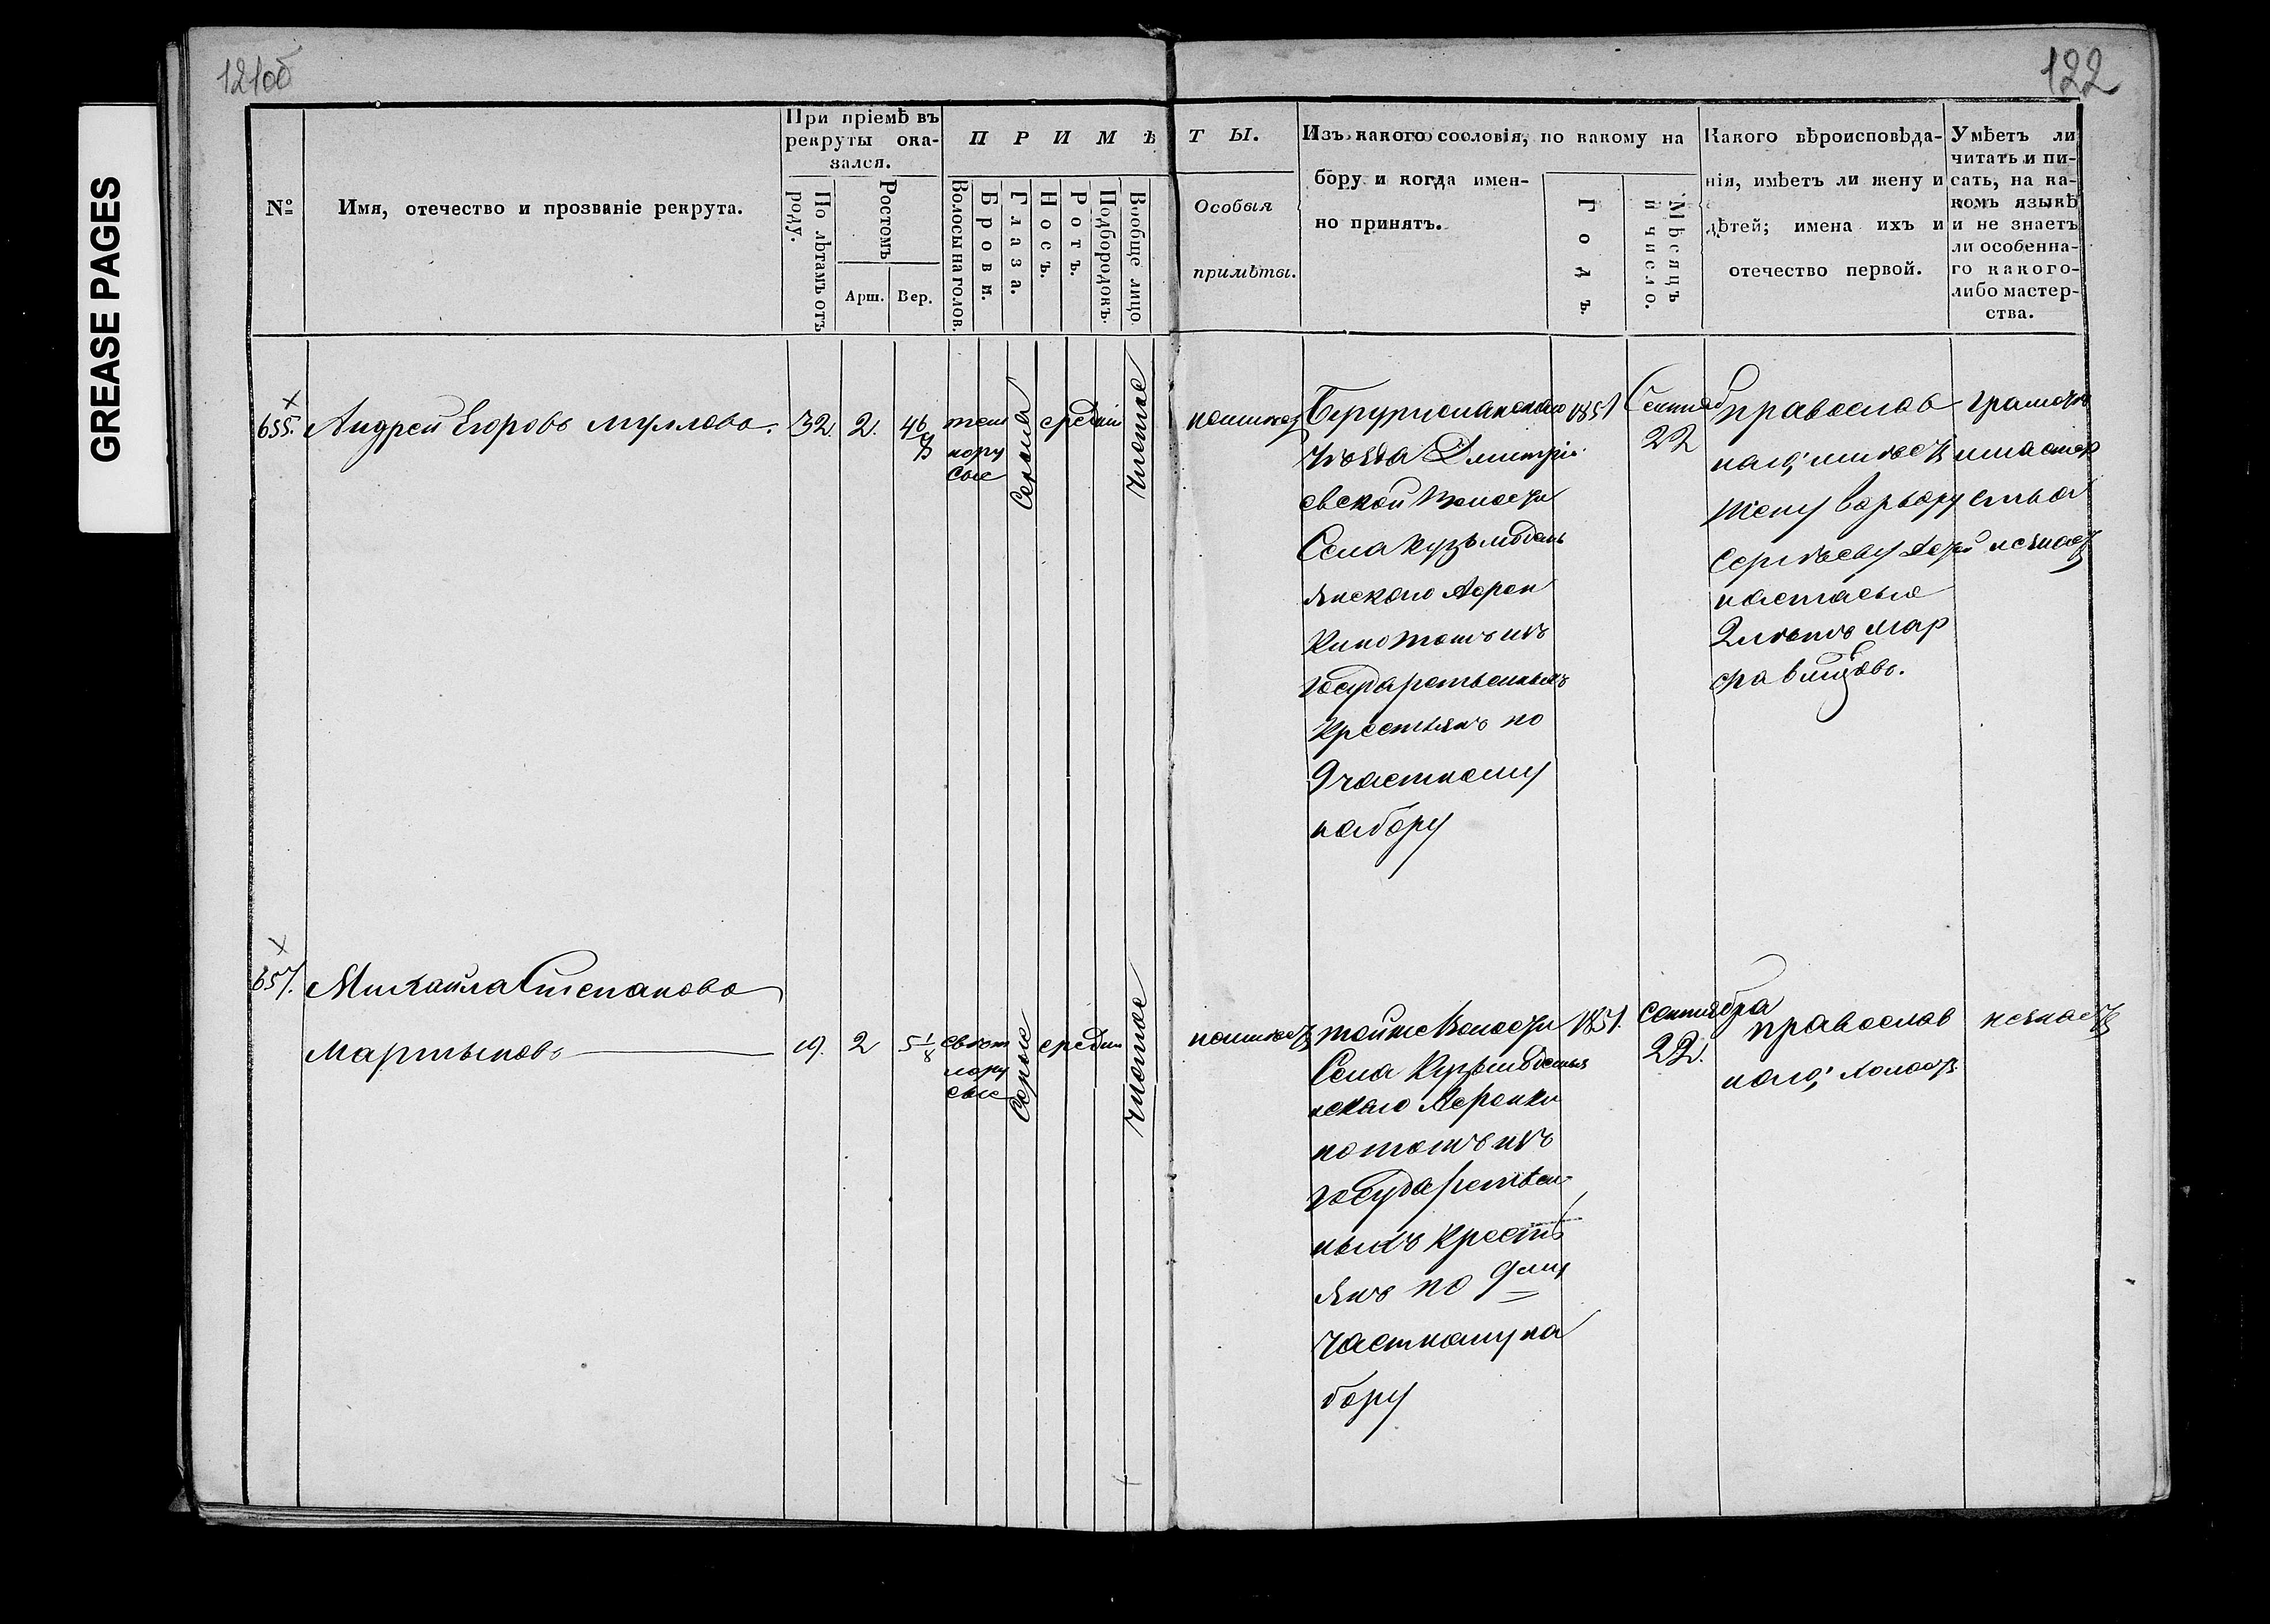 121об
122
GREASE PAGES
№
Имя, отечество и прозваніе рекрута.
При пріемѣ въ
рекруты ока-
зался.
По лѣтамъ отъ
роду.
Ростомъ
Арш.
Вер.
ПРИМѢ
Волосы на голов.
Брови.
Глаза.
Носъ.
Ротъ.
Подбородокъ.
Вообще лицо.
ТЫ.
Особыя
примѣты.
Изъ какого сословія, по какому на
бору и когда имен-
но принятъ.
Годъ.
Мѣсяцъ
и число.
Какого вѣроисповѣда-
нія, имѣетъ ли жену и
дѣтей; имена ихъ и
отечество первой.
Умѣетъ ли
читать и пи-
сать, на ка-
комъ языкѣ
и не знаетъ
ли особенна-
го какого-
либо мастер-
ства.
655.
Андрей Егоровъ
32.
2.
4 6/8
темн
нору
сые
Серыя
средній
Чистое
неимѣетъ
уѣзда Дмитрі
евской волости
Села
янскаго Аерен
Кинотожъ изъ
государственныхъ
Крестьянъ по
9 частному
набору
1851
Сентяб
22
православ
наго, имѣетъ
жену Варвару
Сергѣеву дѣтей
настасья
2 лѣтъ мар
фа
грамотѣ
и мастер
ства
незнаетъ
657.
Михайла Степановъ
Мартыновъ
19.
2
5 1/8
свѣт
лору
сые
Серые
средни
Чистое
неимѣетъ
тойже волости
Села
нскаго Аеренки
нотожъ изъ
государствен-
ныхъ Кресть
янъ по 9му
частному на
бору
1851.
Сентября
22.
православ
наго, холостъ
незнаетъ